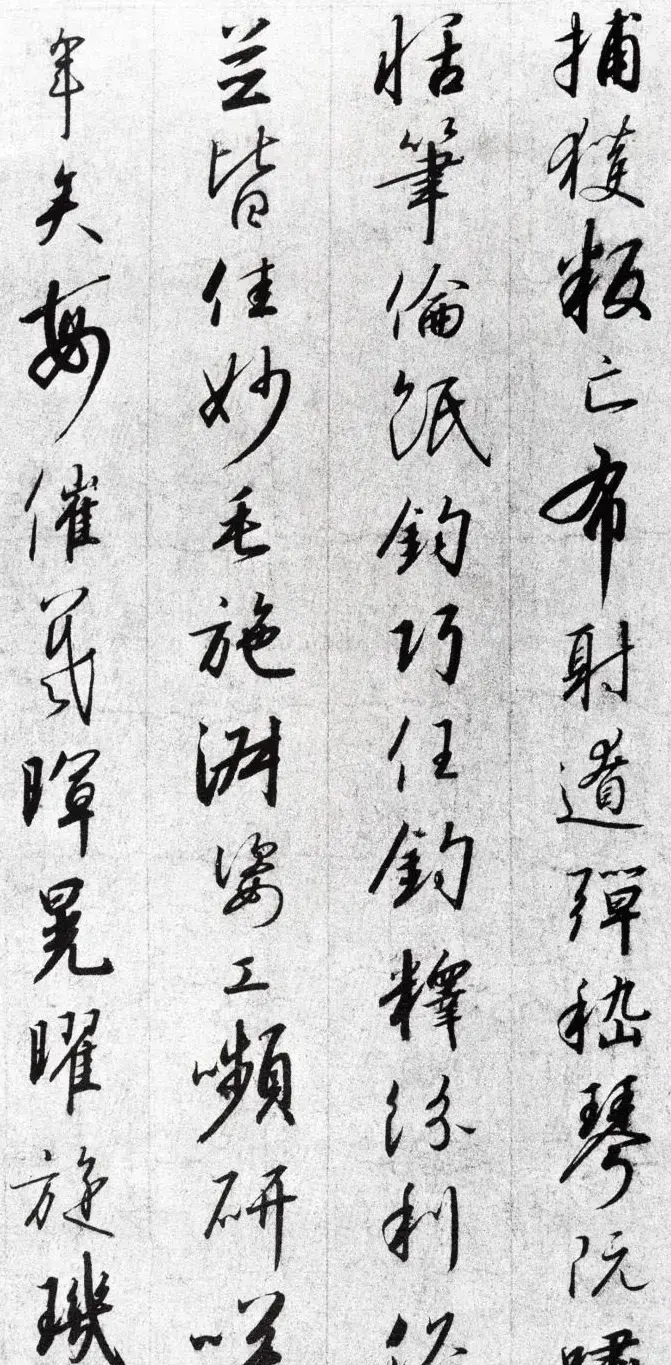 捕獲叛亡布射遼彈嵇琴阮嘯
恬筆倫紙鈞巧任釣釋紛利俗
並皆佳妙毛施淑姿工嚬研咲
年矢每催羲暉晃曜旋璣